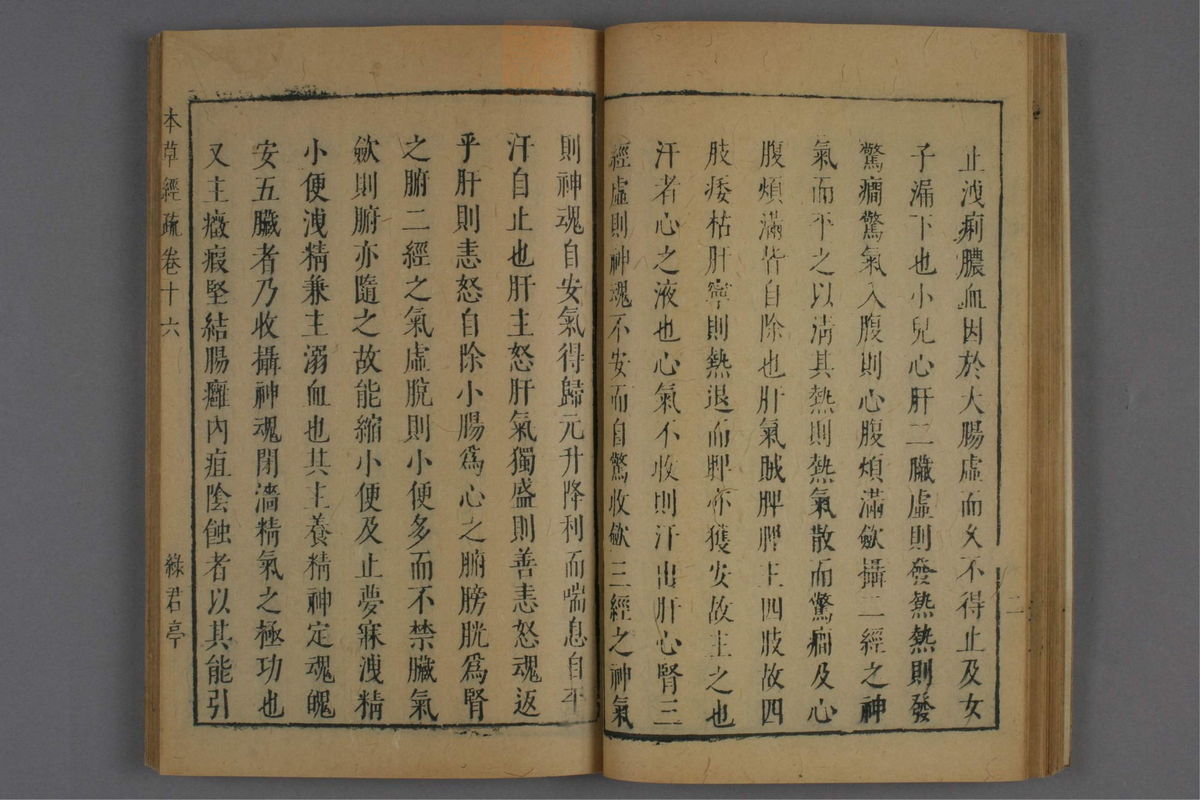 止洩痢膿血因於大腸虛而久不得止及女
子漏下也小兒心肝二臟虛則發熱熱則發
驚癎驚氣入腹則心腹煩滿歛攝二經之神
氣而平之以清其熱則熱氣散而驚癎及心
腹煩滿皆自除也肝氣賊脾脾主四肢故四
肢痿枯肝寧則熱退而脾亦獲安故主之也
汗者心之液也心氣不收則汗出肝心腎三
經虛則神魂不安而自驚收歛三經之神氣
二
則神魂自安氣得歸元升降利而喘息自平
汗自止也肝主怒肝氣獨盛則善恚怒魂返
乎肝則恚怒自除小腸爲心之腑膀胱爲腎
之腑二經之氣虛脫則小便多而不禁臟氣
歛則腑亦隨之故能縮小便及止夢寐洩精
小便洩精兼主溺血也其主養精神定魂魄
安五臟者乃收攝神魂閉濇精氣之極功也
又主癥瘕堅結腸癰內疽陰蝕者以其能引
本草經疏卷十六
綠君亭